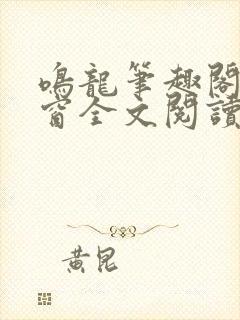 鳴龍筆趣閣
窗全文閱讀
黃昆